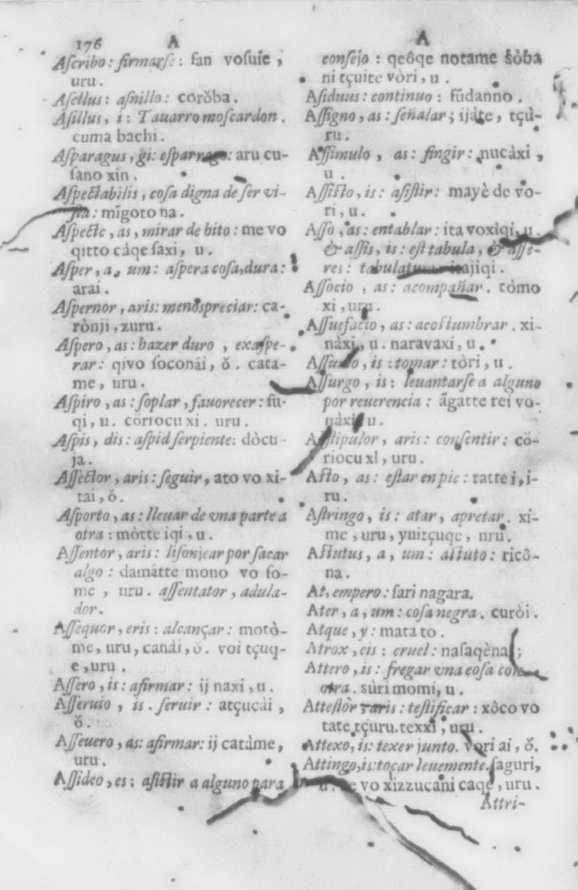 176 A
Aſcribo: firmarſe: ſan voſuie,
uru.
Aſellus: aſnillo: corŏba.
Aſillus, i: Tauarro moſcardon.
cuma bachi.
Aſparagus, gi: eſparrago: aru cu-
ſano xin.
Aſpectabilis, coſa digna de ſer vi-
ſta: migoto na.
Aſpecte, as, mirar de hito: me vo
qitto càqe ſaxi, u.
Aſper, a, um: aſpera coſa, dura:
arai.
Aſpernor, aris: menoſpreciar: ca-
rònji, zuru.
Aſpero, as: hazer duro, exaſpe-
rar: qivo ſoconâi, ŏ. cata-
me, uru.
Aſpiro, as: ſoplar, fauorecer: fu-
qi, u. còriocu xi. uru.
Aſpis, dis: aſpid ſerpiente: dòcu-
ja.
Aſſector, aris: ſeguir, ato vo xi-
tai, ŏ.
Aſporto, as: lleuar de vna parte a
otra: mòtte iqi, u.
Aſſentor, aris: liſonjear por ſacar
algo: damàtte mono vo ſo-
me, uru. aſſentator, adula-
dor.
Aſſequor, eris: alcançar: motò-
me, uru, canâi, ŏ. voi tçuq-
e, uru.
Aſſero, is: afirmar: ij naxi, u.
Aſſeruio, is. ſeruir: atçucâi,
ŏ.
Aſſeuero, as: afirmar: ij catàme,
uru.
Aſſideo, es: aſiſtir a alguno para
A
conſejo: qeôqe notame ſŏba
ni tçuite vòri, u.
Aſiduus: continuo: fŭdanno.
Aſſigno, as: ſeñalar; ijàte, tçù-
ru.
Aſſimulo, as: fingir: nucàxi,
u.
Aſſiſto, is: aſiſtir: mayè de vo-
ri, u.
Aſſo, as: entablar: ita voxìqi, u.
& aſſis, is: eſt tabula, & aſſe-
res: tabulatum itajiqi.
Aſſocio, as: acompañar. tòmo
xi, uru.
Aſſuefacio, as: acoſtumbrar. xi-
nàxi, u. naravaxi, u.
Aſſumo, is: tomar: tòri, u.
Aſſurgo, is: leuantarſe a alguno
por reuerencia: ãgatte rei vo-
nàxi, u.
Aſtipulor, aris: conſentir: cò-
riocu xI, uru.
Aſto, as: eſtar en pie: tatte i, i-
ru.
Aſtringo, is: atar, apretar. xi-
me, uru, yuitçuqe, uru.
Aſtutus, a, um: aſtuto: ricô-
na.
At, empero: ſari nagara.
Ater, a, um: coſa negra. curòi.
Atque, y: mata to.
Atrox, cis: cruel: naſaqèna;
Attero, is: fregar vna coſa con
otra. sùri momi, u.
Atteſtor aris: teſtificar: xôco vo
tate, tçuru. texxi, uru.
Attexo, is: texer junto. vori ai, ŏ.
Attingo, is: toçar leuemente. ſaguri,
u: te vo xizzucàni caqe, uru.
Attri-